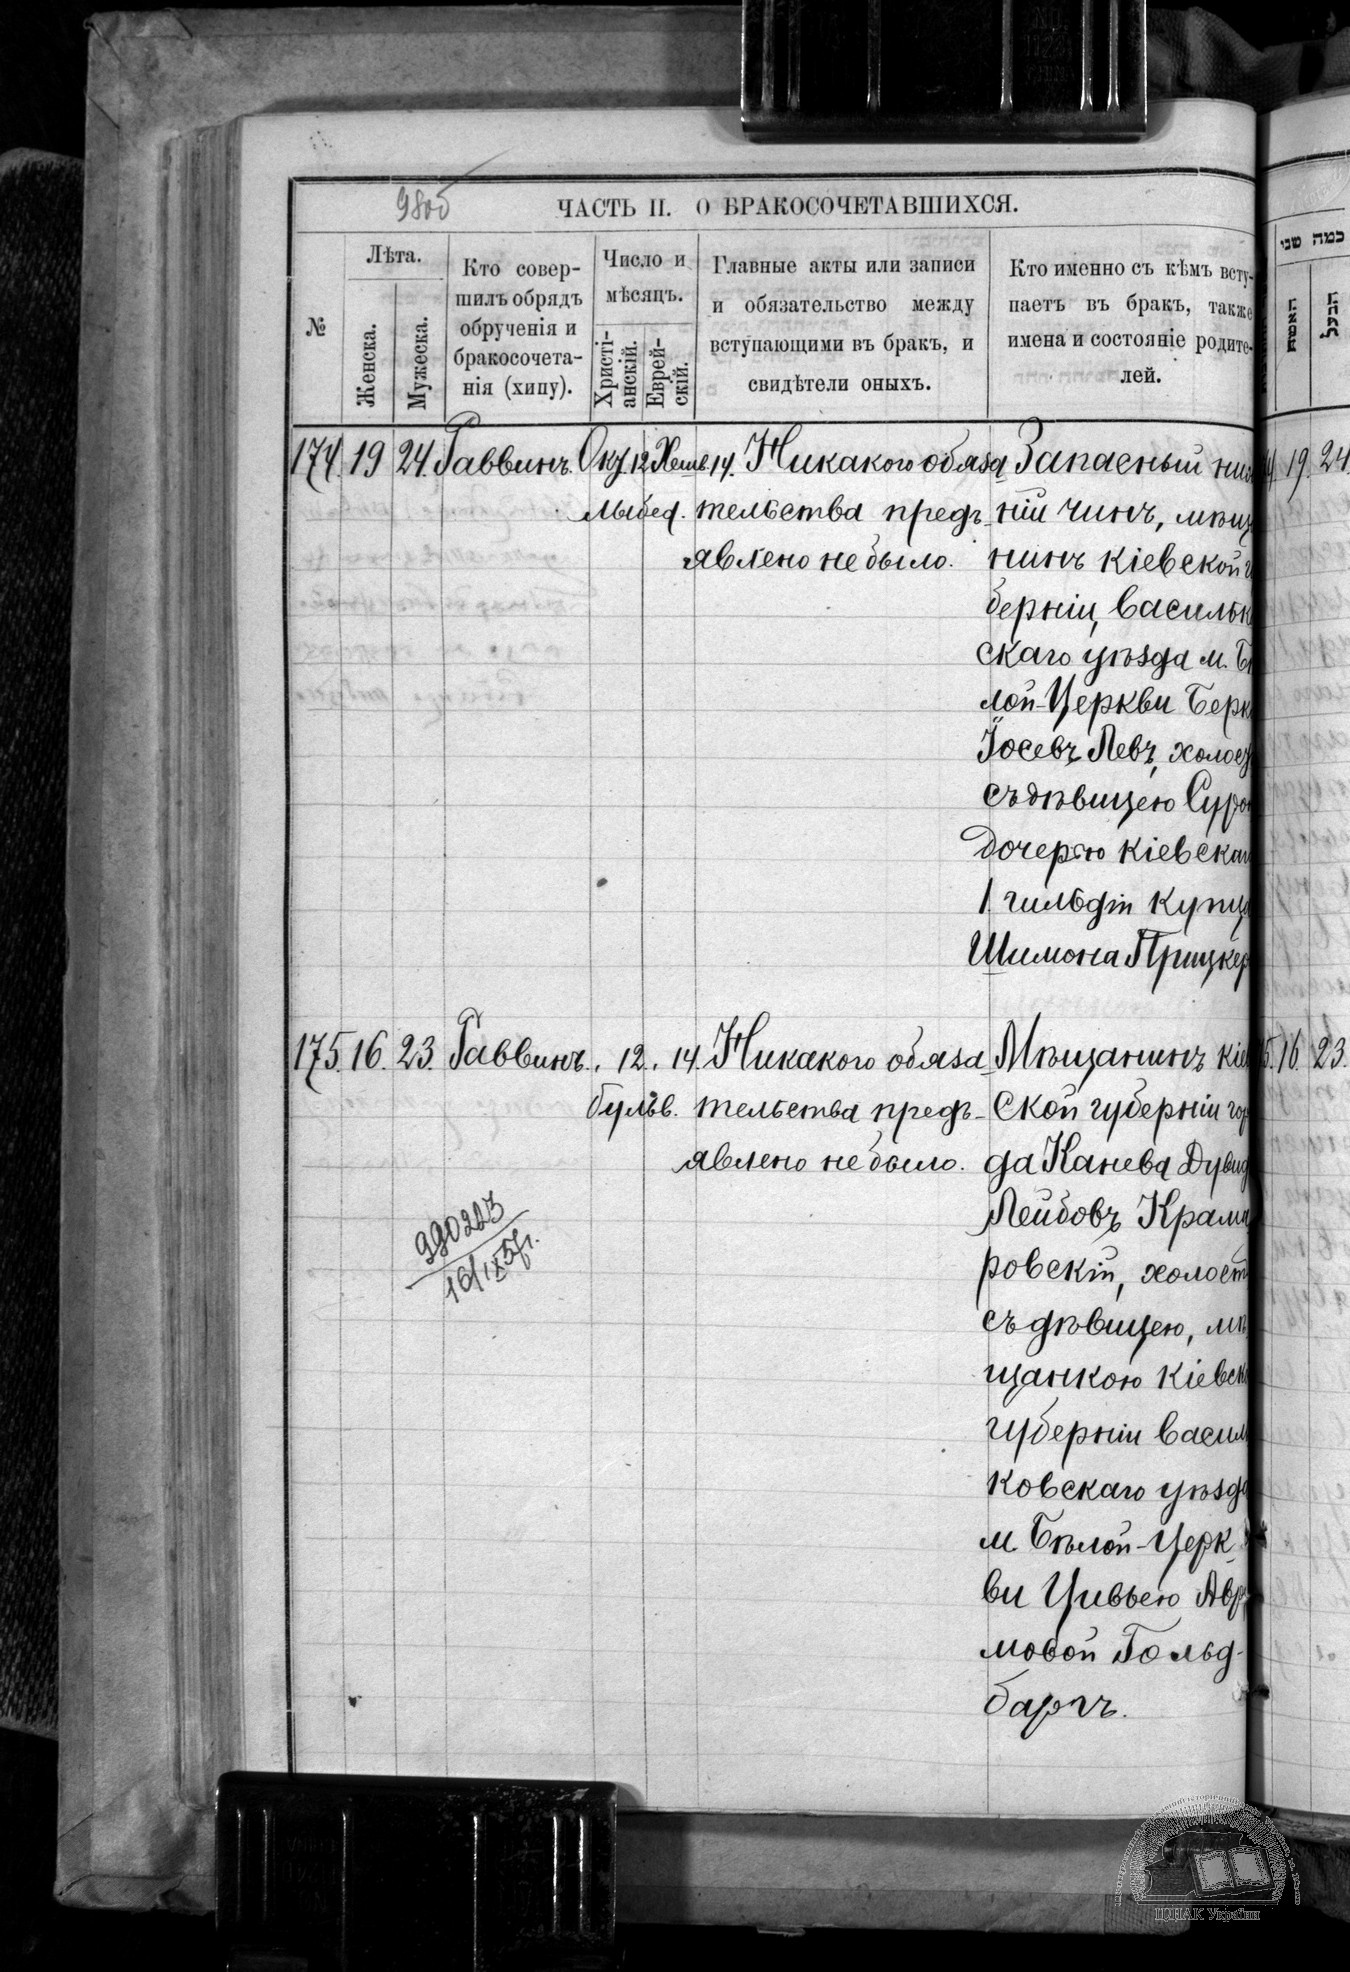 98об
ЧАСТЬ II. О БРАКОСОЧЕТАВШИХСЯ.
№
Лѣта.
Женска.
Мужеска.
Кто совер-
шилъ обрядъ
обрученія и
бракосочета-
нія (хипу).
Число и
мѣсяцъ.
Христі-
анскій.
Еврей-
скій.
Главные акты или записи
и обязательство между
вступающими въ бракъ, и
свидѣтели оныхъ.
Кто именно съ кѣмъ всту-
паетъ въ бракъ, также
имена и состояніе родите-
лей.
כמה שני
האשה
הבעל
174. 19 24. Раввинъ. Окт. 12 Хешв 14. Никакого обяза Запасный ниж
лыбед. тельства предъ- ній чинъ, мѣща
явлено не было. нинъ Кіевской гу
берніи, Васильков
скаго уѣзда м. Бѣ
лой-Церкви Берко
Іосевъ Левъ, холост
съ дѣвицею Сурою
дочерью Кіевскаго
1 гильдіи купца
Шимона Прицкер
19. 24.
175. 16. 23. Раввинъ. „ 12. „ 14. Никакого обяза- Мѣщанинъ Кіев
бульв. тельства предъ- ской губерніи горо
явлено не было. да Канева Дувид
Лейбовъ Крама
ровскій, холост
съ дѣвицею, мѣ
щанкою Кіевской
губерніи Василь
ковскаго уѣзда
м. Бѣлой-Церк-
ви Цивьею Авра
мовой Гольд-
баргъ.
5. 16. 23.
990223
16/IX 57г.
ЦДІАК України